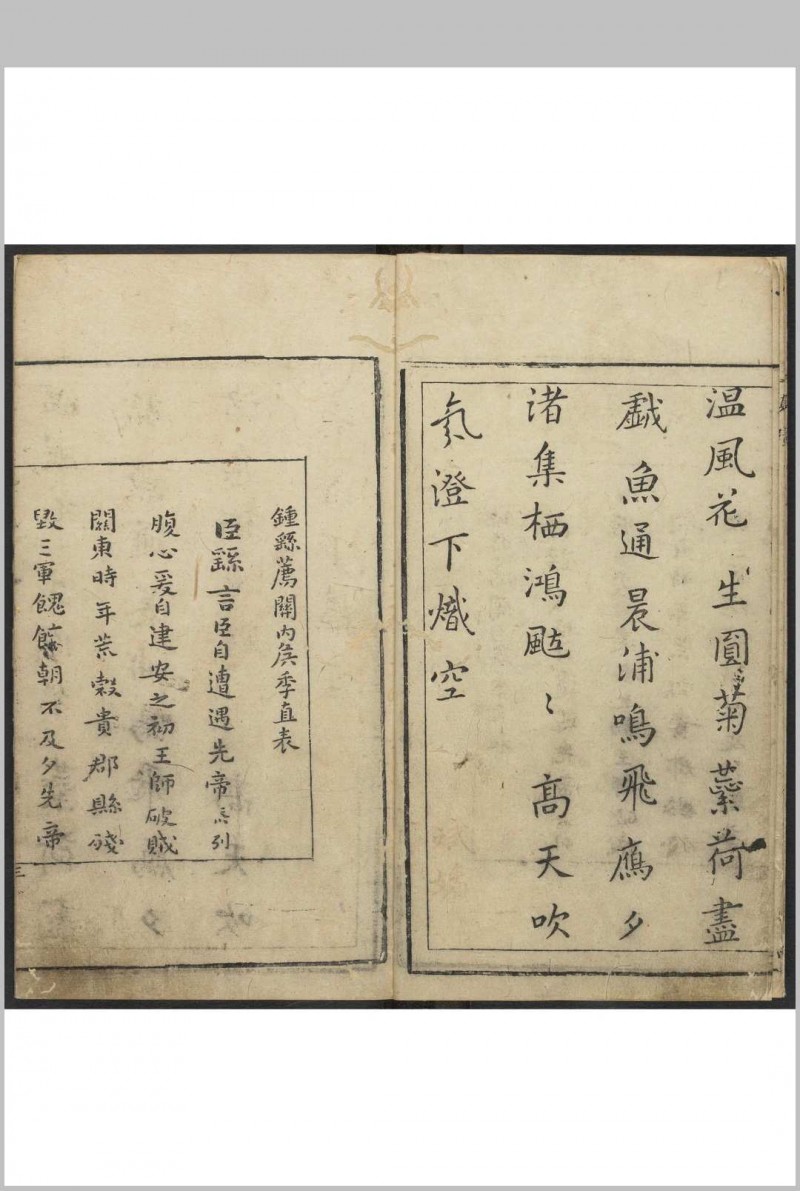 温風花生圓菊蘂荷盡
戯魚通晨浦鳴飛鷹夕
渚集栖鴻颭〻高天吹
氛澄下熾空
鍾繇薦關内矦季直表
臣繇言臣自遭遇先帝忝列
腹心爰自建安之初王師破賊
關東時年荒榖貴郡縣殘
毀三軍餽饟朝不及夕先帝
三